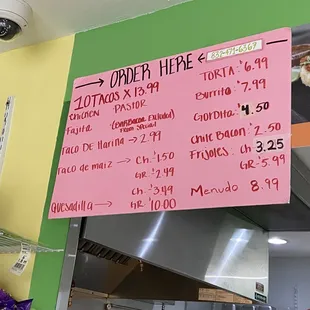 → ORDER HERE ←
832-473-6369
10 TACOS X 13.99
CHICKEN PASTOR
Fajita (BARBACOA Excluded
From Special)
Taco DE Harina → 2.99
Taco de maiz → Ch. 1.50
GR. $2.49
Quesadilla → CH. $3.49
GR. $10.00
TORTA: $6.99
Burrito: $7.99
Gordita: $4.50
Chile Bacon: $2.50
Frijoles: CH $3.25
GR: $5.99
Menudo 8.99